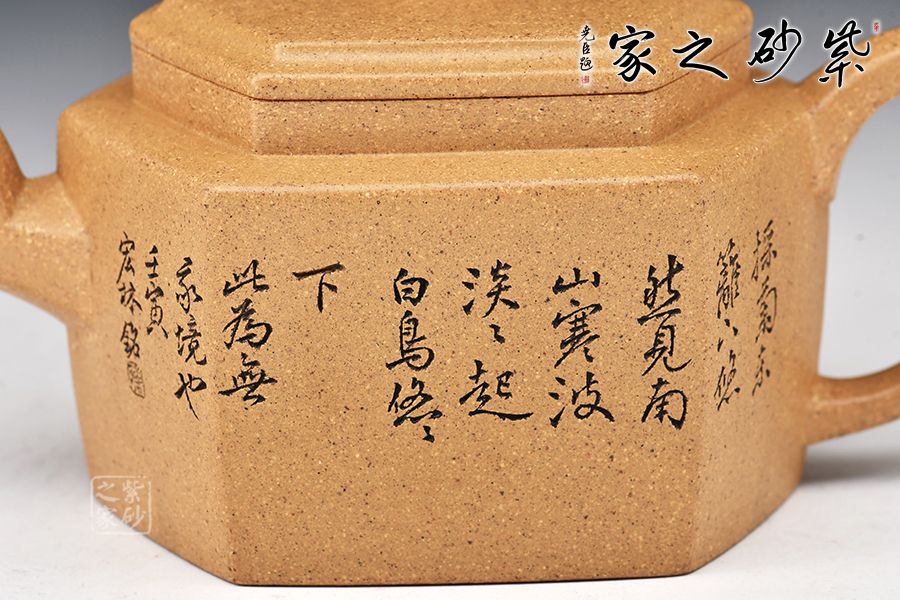 紫砂之家
尧臣题
採菊东
籬下悠
然見南
山寒波
淡〻起
白鳥悠〻
下
此為無
我境也
壬寅
宏林銘
紫砂
之家